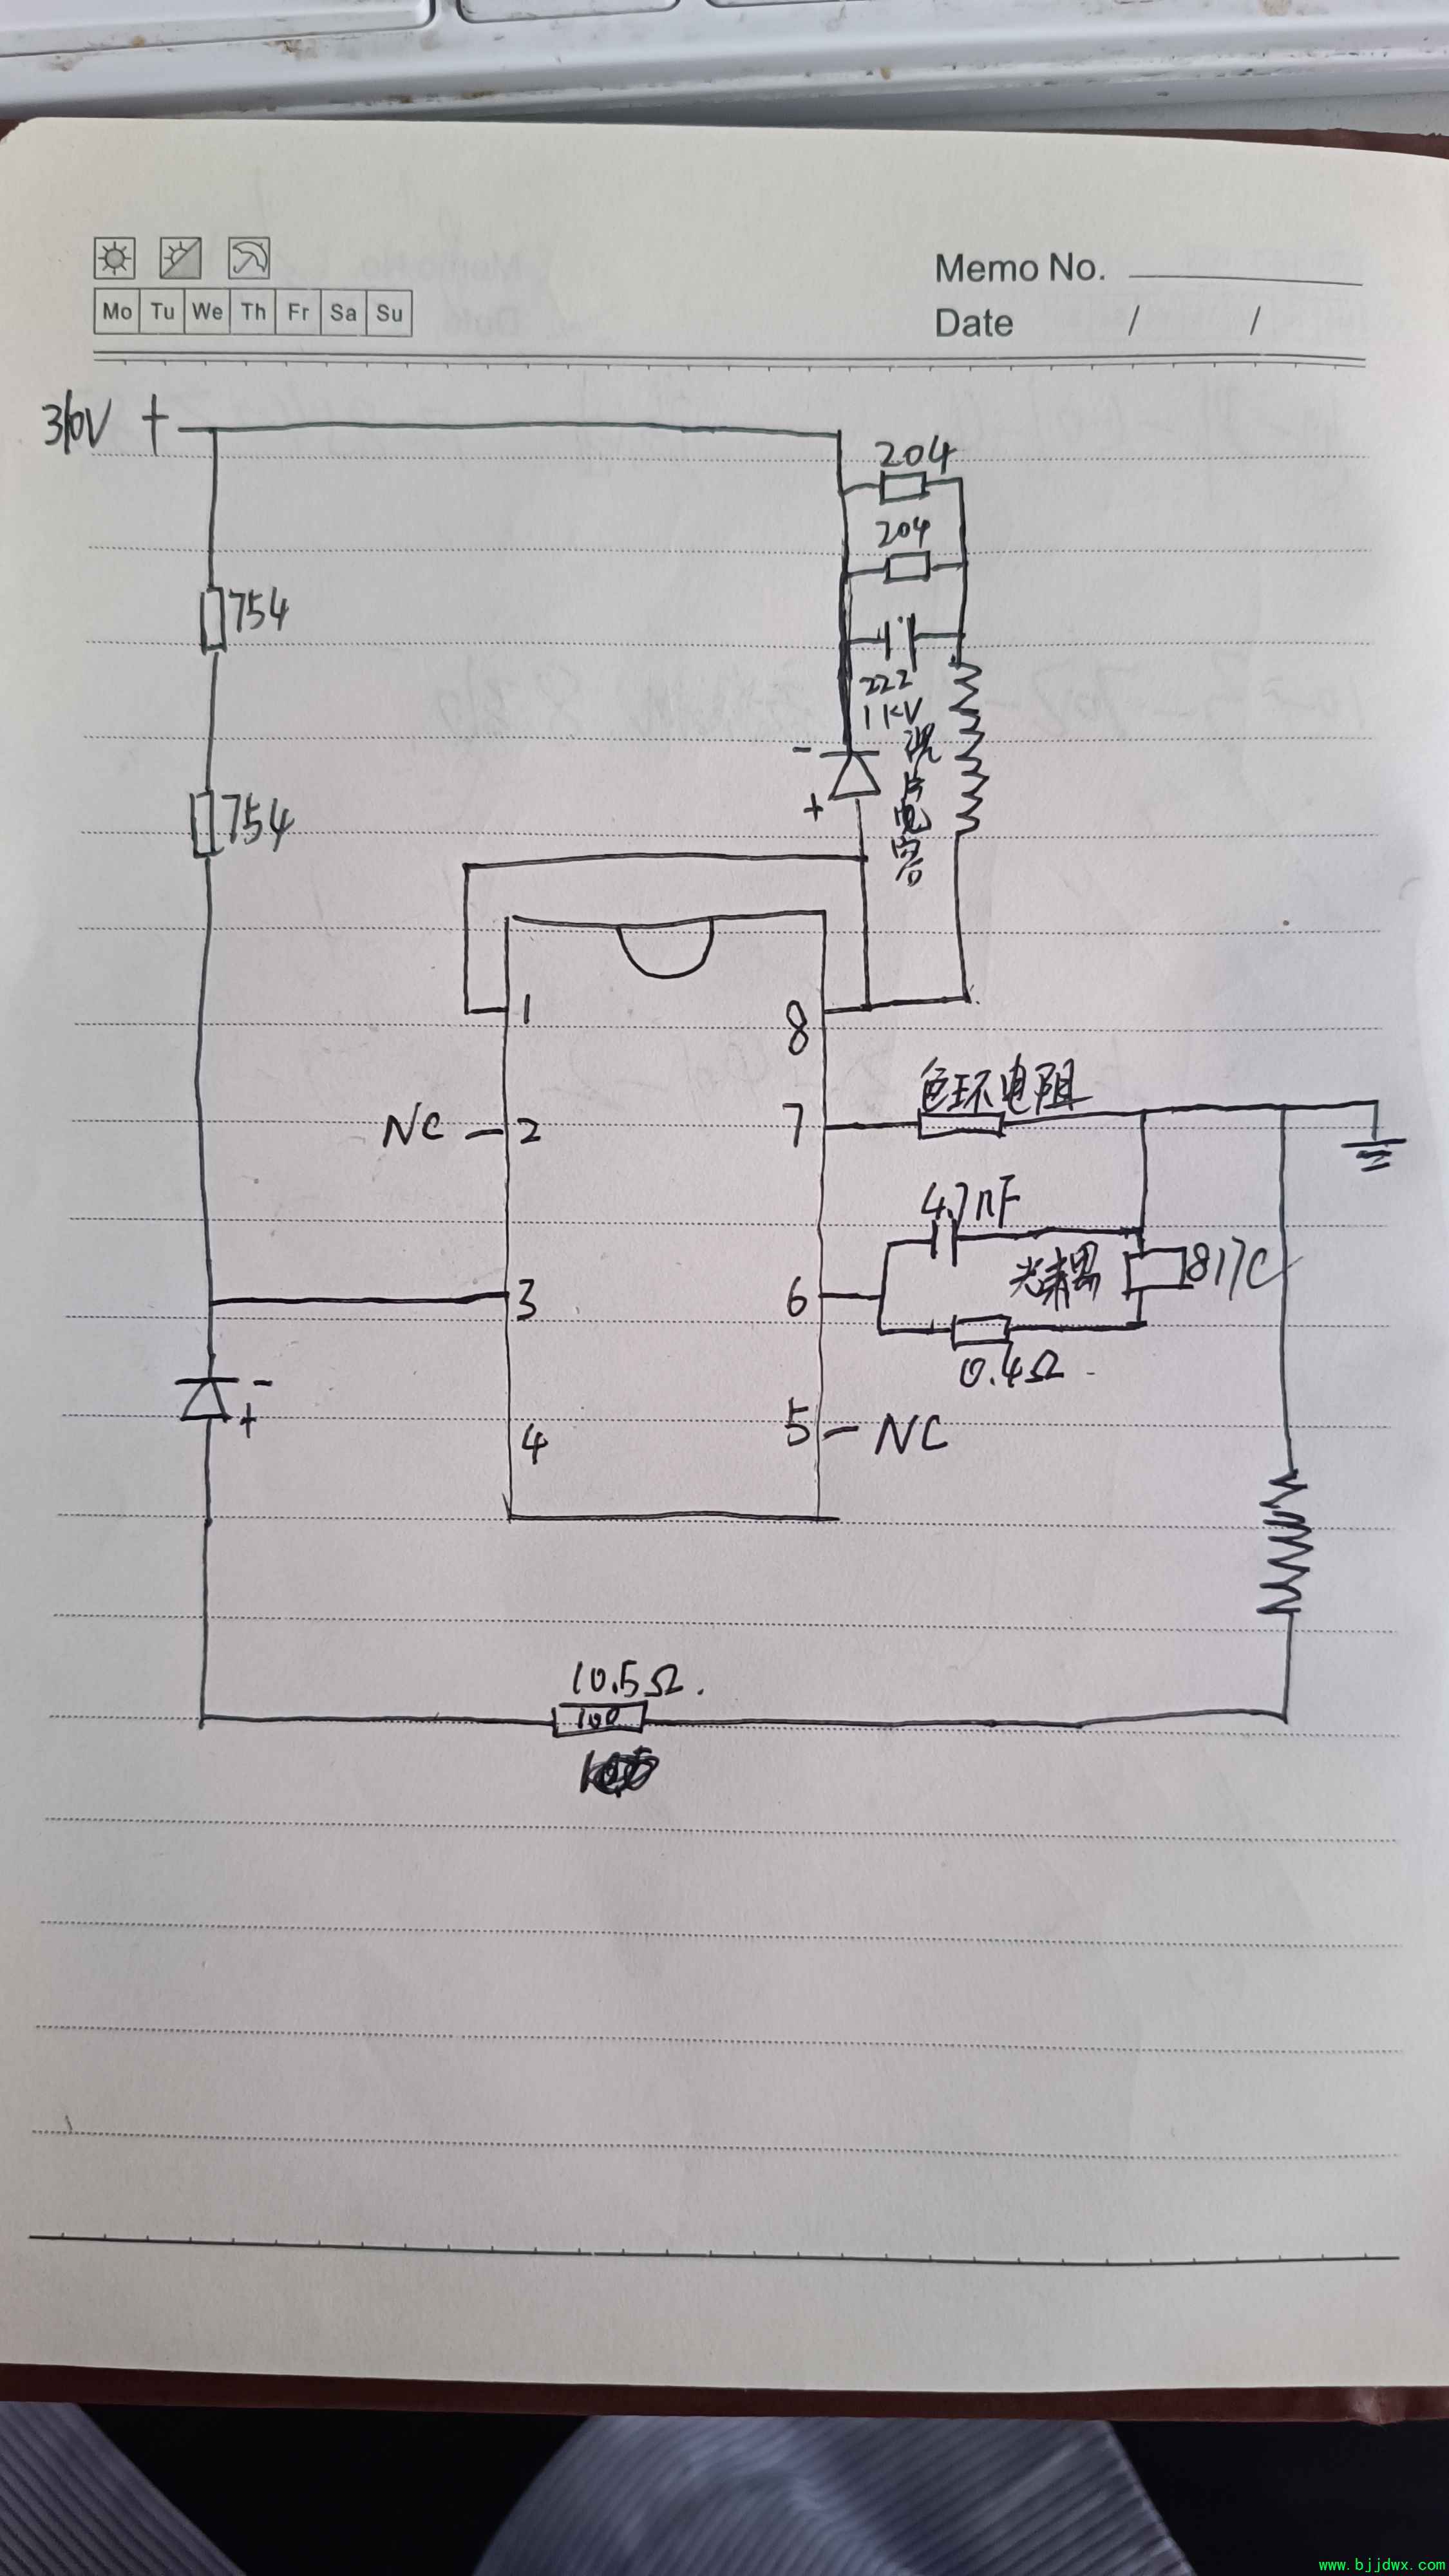 Memo No.
Mo Tu We Th Fr Sa Su
Date / /
310V +
204
204
754
222
1KV
-
瓷片电容
+
754
1
8
色环电阻
NC
2
7
4.7nF
光耦
817C
3
6
0.4Ω
-
+
4
5
NC
10.5Ω.
100
www.bjjdwx.com